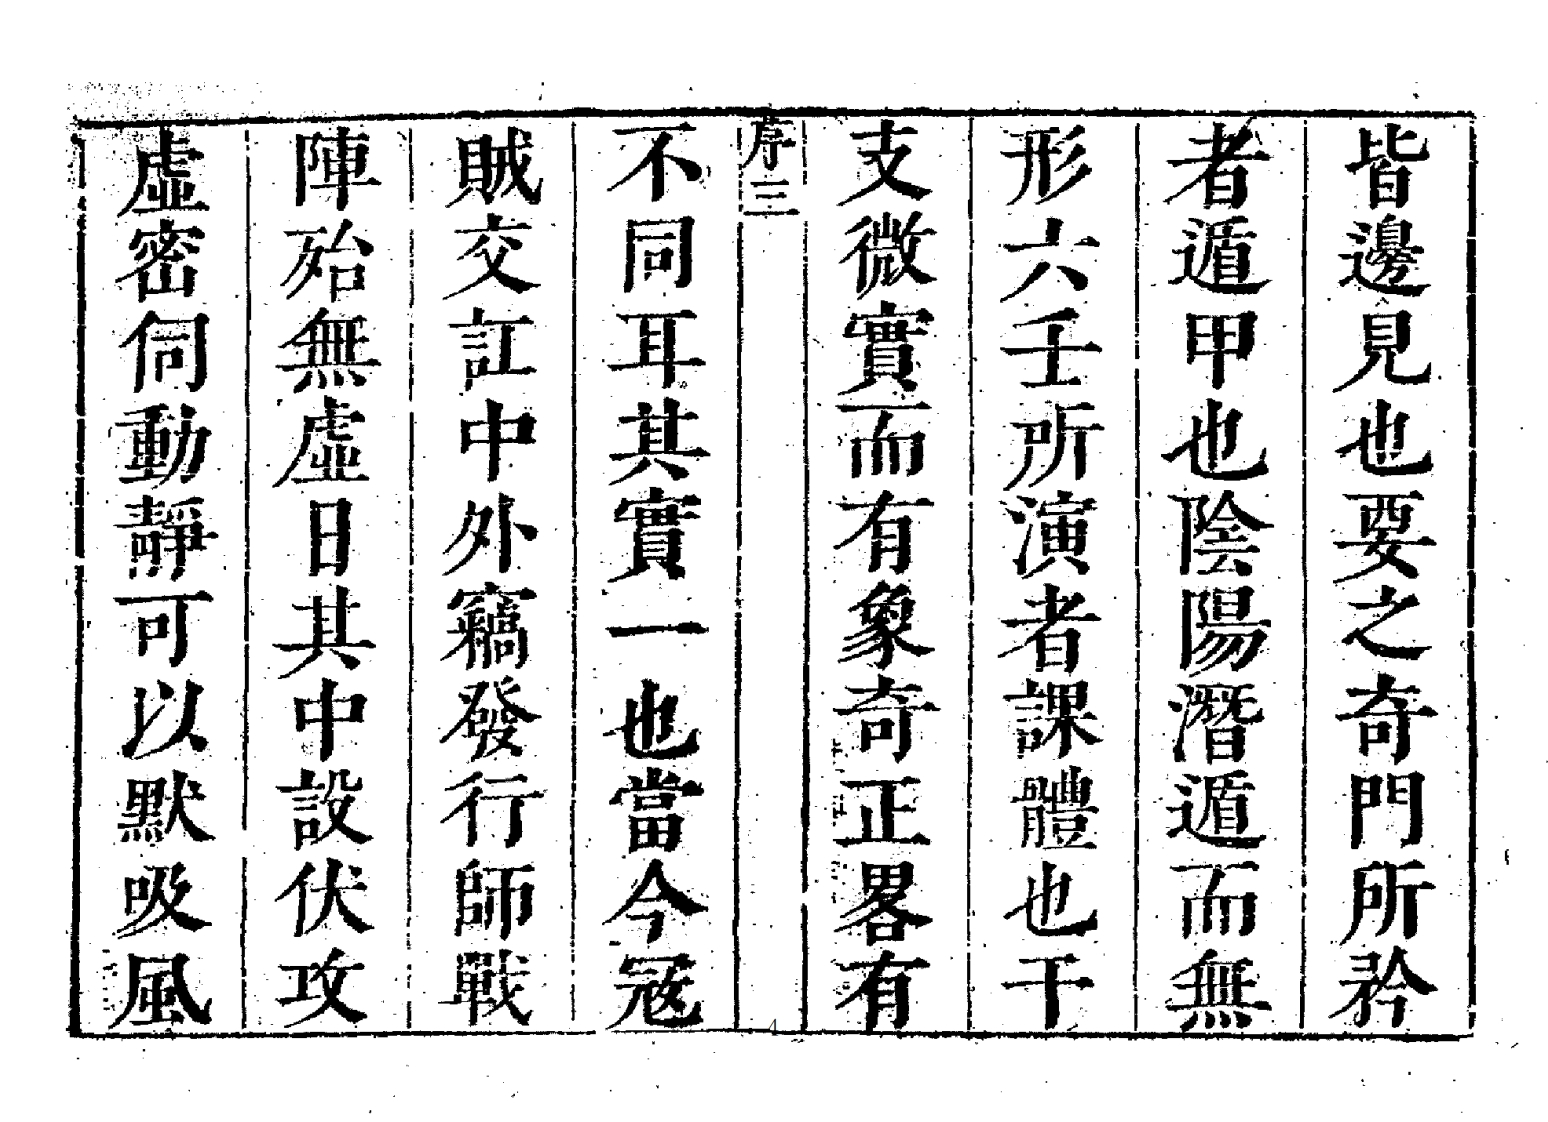 皆邊見也要之奇門所矜
者遁甲也陰陽潛遁而無
形六壬所演者課體也干
支微實而有象奇正畧有
序三
不同耳其實一也當今冦
賊交訌中外竊發行師戰
陣殆無虛日其中設伏攻
虛密伺動靜可以默吸風